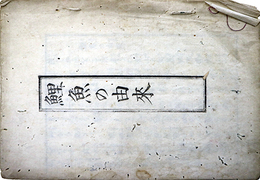 鯉魚の由來